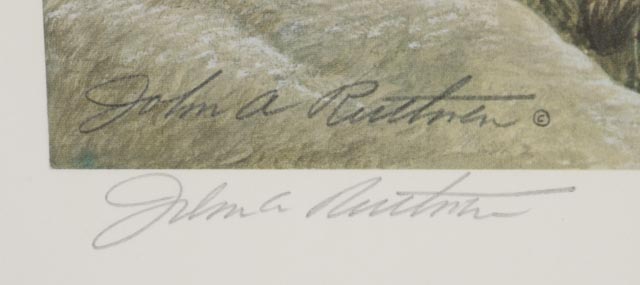 John A Ruthven ©
John A Ruthven